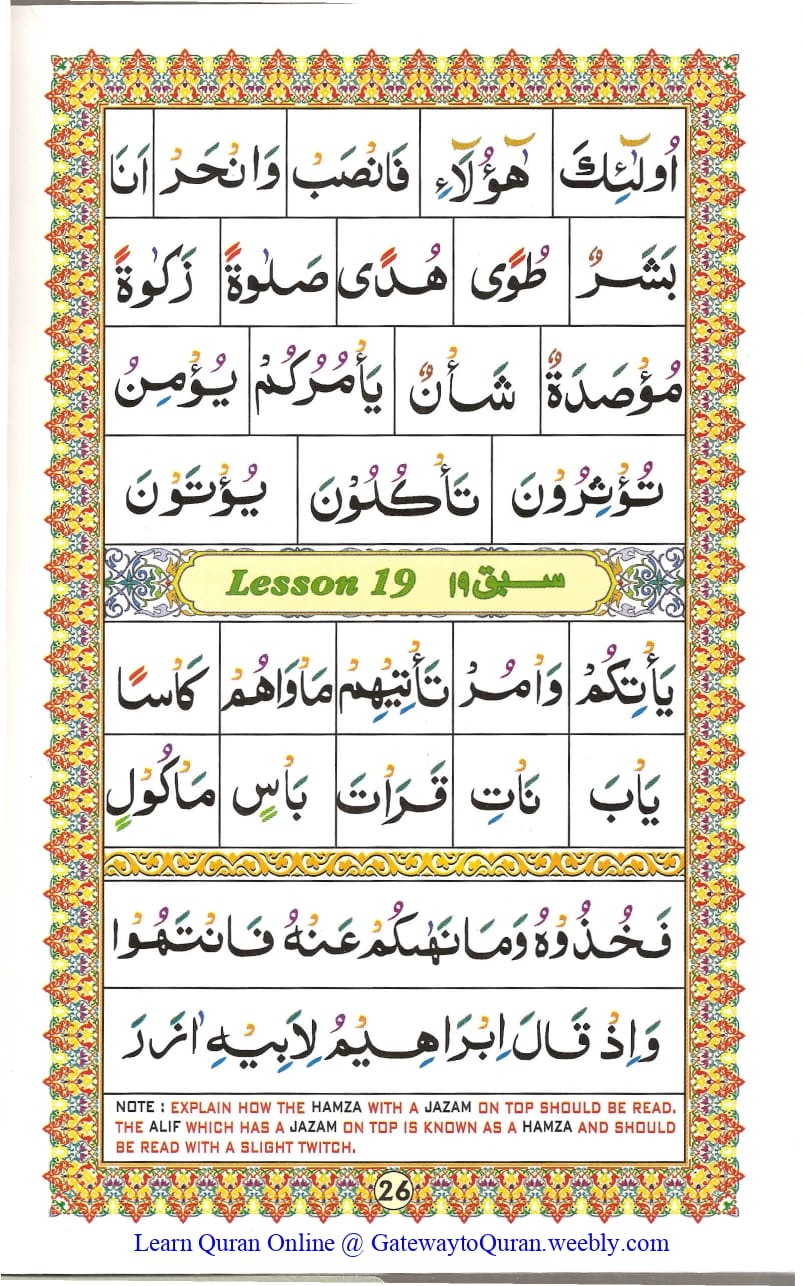 اُولٰٓئِكَ هٰٓؤُلَآءِ فَانْصَبْ وَانْحَرْ اَنَا
بَشَرٌ طُوًى هُدًى صَلٰوةً زَكٰوةً
مُؤْصَدَةٌ شَأْنٌ يَأْمُرُكُمْ يُؤْمِنُ
تُؤْثِرُوْنَ تَأْكُلُوْنَ يُؤْتَوْنَ
Lesson 19 سبق ۱۹
يَأْتِكُمْ وَاْمُرْ تَأْتِيْهِمْ مَاْوَاهُمْ كَاْسًا
يَاْبَ نَاْتِ قَرَاْتَ بَاْسٍ مَاْكُوْلٍ
فَخُذُوْهُ وَمَا نَهٰىكُمْ عَنْهُ فَانْتَهُوْا
وَاِذْ قَالَ اِبْرَاهِيْمُ لِاَبِيْهِ اٰزَرَ
NOTE : EXPLAIN HOW THE HAMZA WITH A JAZAM ON TOP SHOULD BE READ.
THE ALIF WHICH HAS A JAZAM ON TOP IS KNOWN AS A HAMZA AND SHOULD
BE READ WITH A SLIGHT TWITCH.
26
Learn Quran Online @ GatewaytoQuran.weebly.com